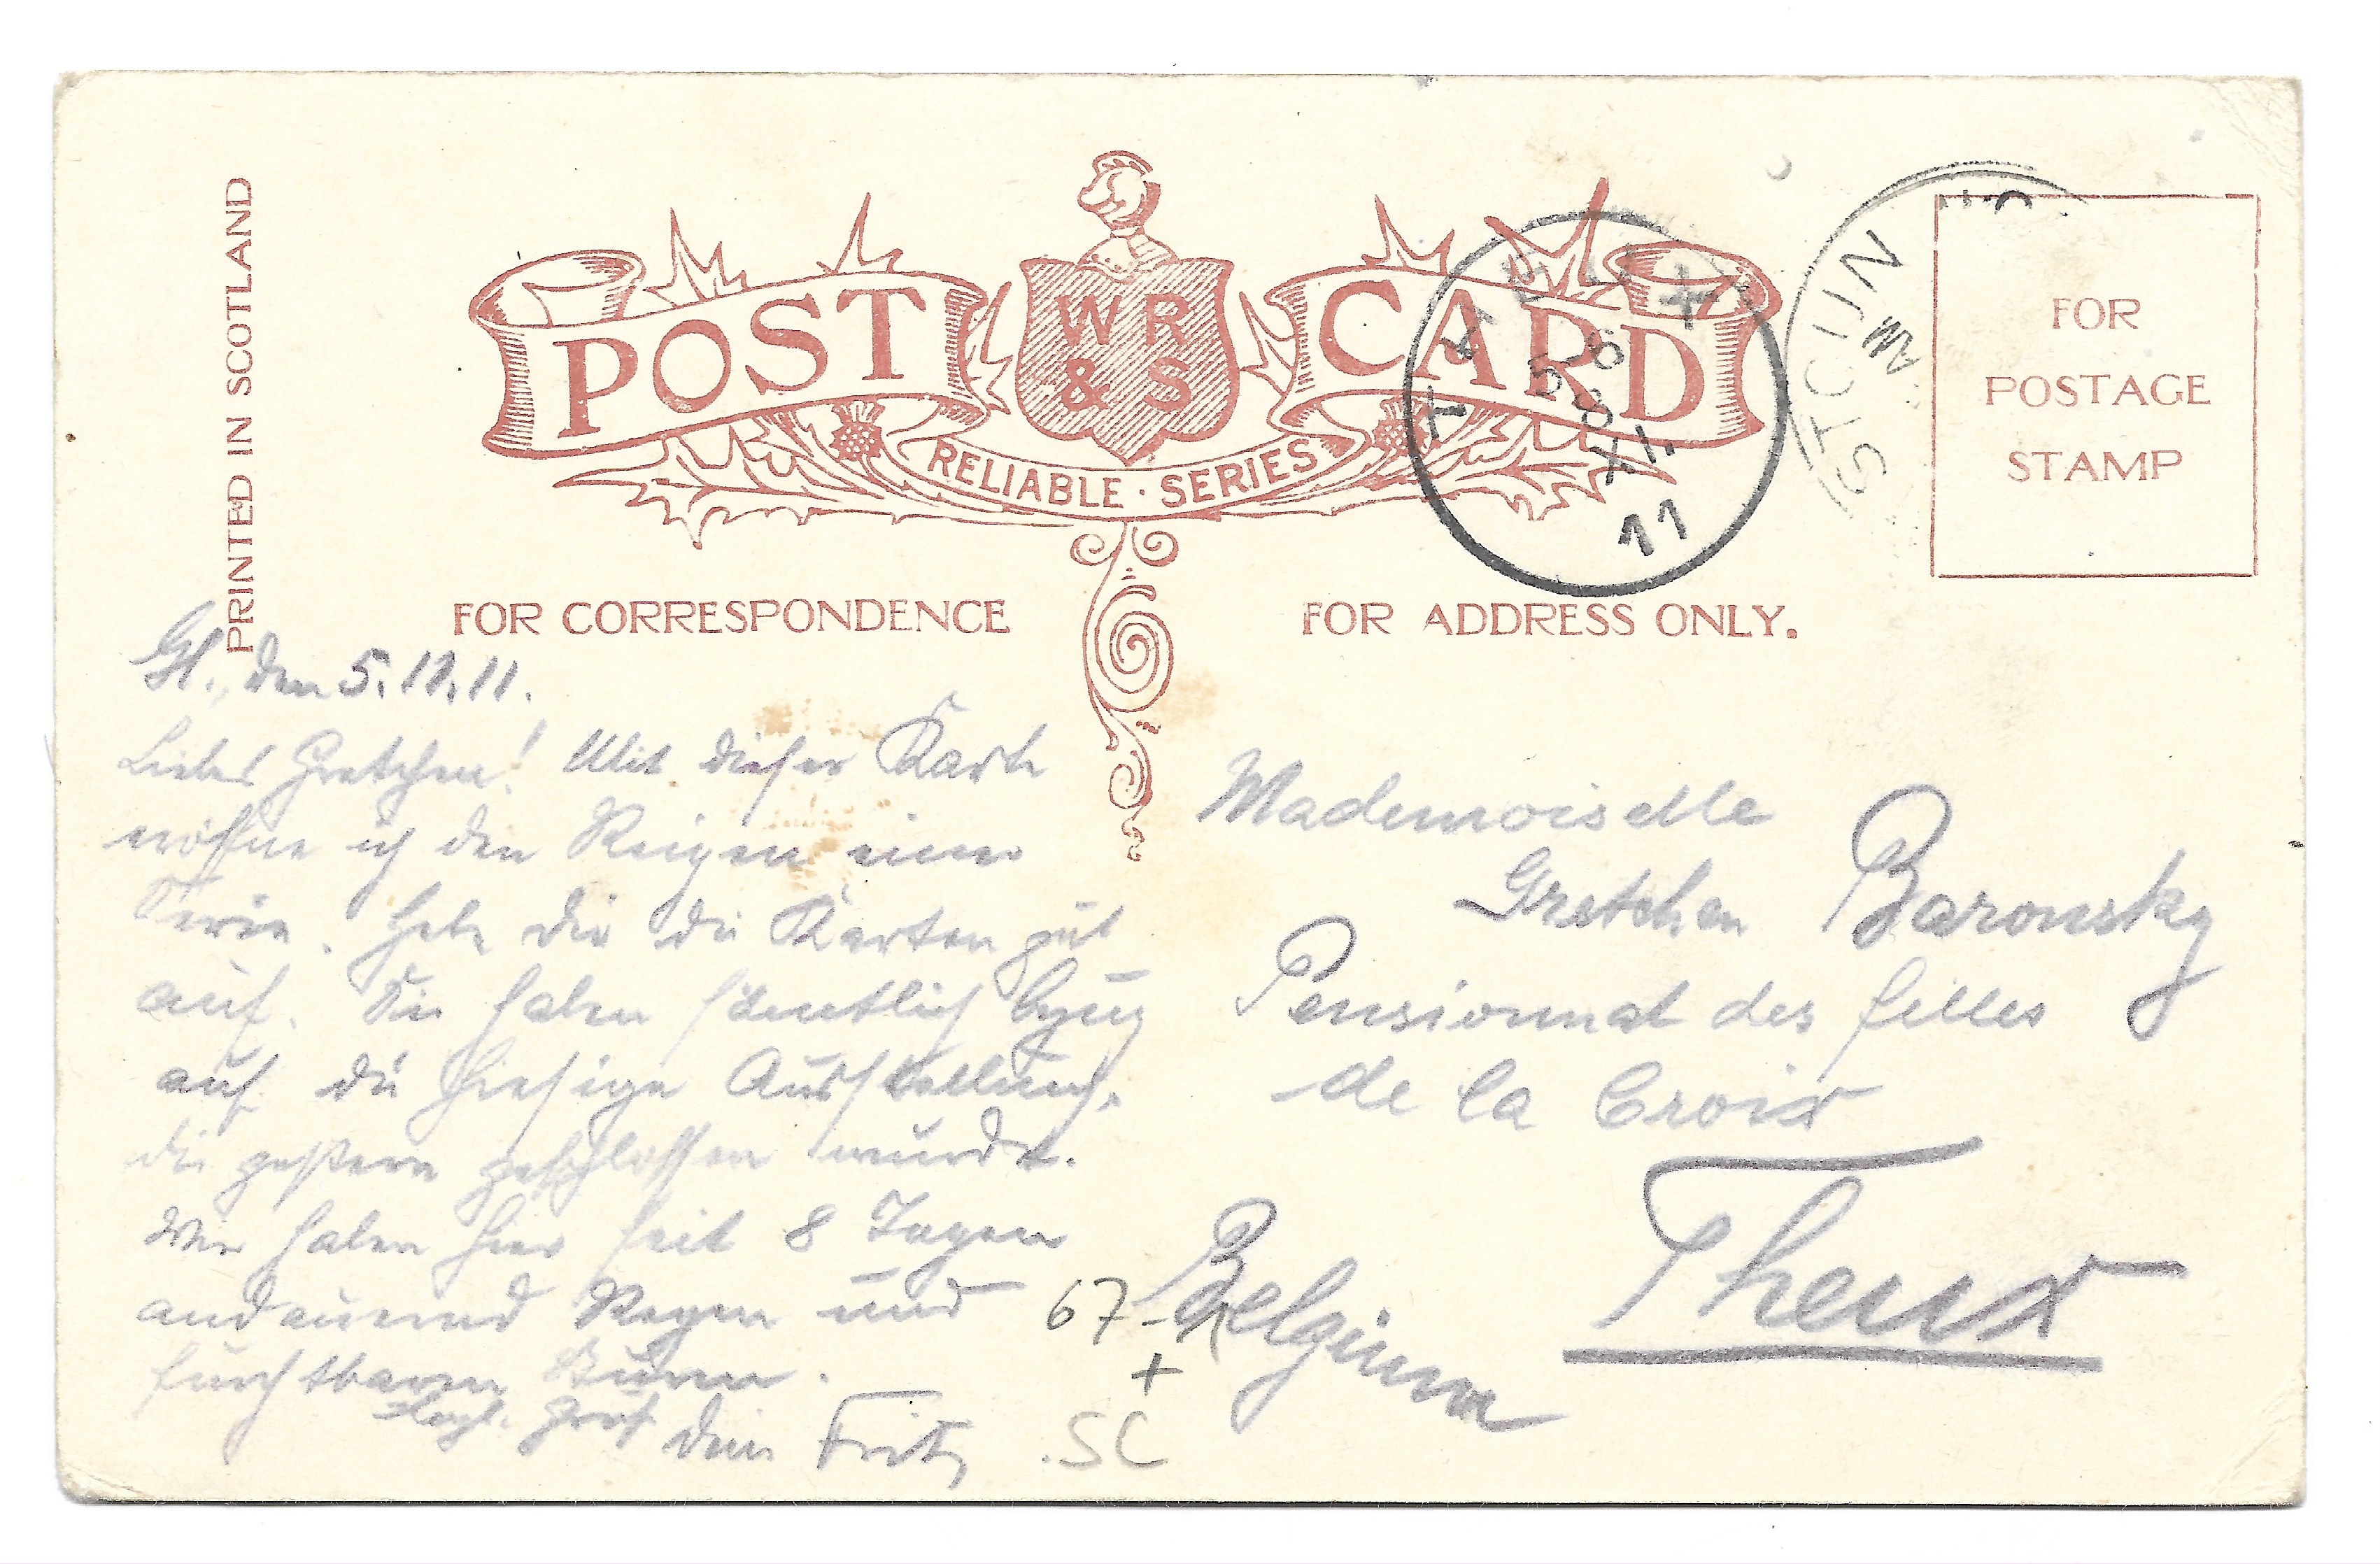 PRINTED IN SCOTLAND
POST CARD
WR
& S
RELIABLE · SERIES
FOR
POSTAGE
STAMP
8
XI
11
FOR CORRESPONDENCE
FOR ADDRESS ONLY.
Gl., den 5.11.11.
Liebes Gretchen! Mit dieser Karte
eröffne ich den Reigen einer
Serie. Hebe dir die Karten gut
auf. Sie haben sämtlich Bezug
auf die hiesige Ausstellung,
die gestern geschlossen wurde.
Wir haben hier seit 8 Tagen
andauernd Regen und
furchtbaren Sturm.
Herzl. Gruß dein Fritz
Mademoiselle
Gretchen Baronsky
Pensionnat des filles
de la Croix
Theux
Belgium
67
+
SC